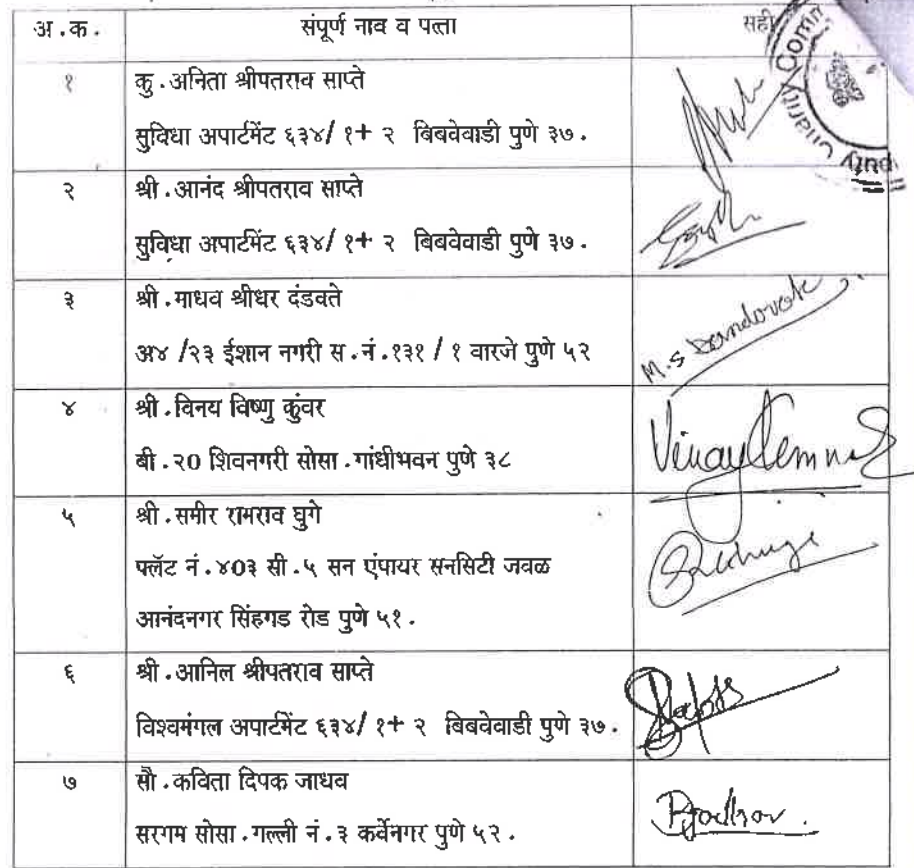 अ.क. संपूर्ण नाव व पत्ता सही
१ कु.अनिता श्रीपतराव साप्ते
सुविधा अपार्टमेंट ६३४/ १+ २ बिबवेवाडी पुणे ३७.
२ श्री.आनंद श्रीपतराव साप्ते
सुविधा अपार्टमेंट ६३४/ १+ २ बिबवेवाडी पुणे ३७.
३ श्री.माधव श्रीधर दंडवते
अ४ /२३ ईशान नगरी स.नं.१३१ / १ वारजे पुणे ५२
M.S Dandovate
४ श्री.विनय विष्णु कुंवर
बी.२0 शिवनगरी सोसा.गांधीभवन पुणे ३८
Vinay
५ श्री.समीर रामराव घुगे
फ्लॅट नं.४0३ सी.५ सन एंपायर सनसिटी जवळ
आनंदनगर सिंहगड रोड पुणे ५१.
६ श्री.आनिल श्रीपतराव साप्ते
विश्वमंगल अपार्टमेंट ६३४/ १+ २ बिबवेवाडी पुणे ३७.
७ सौ.कविता दिपक जाधव
सरगम सोसा.गल्ली नं.३ कर्वेनगर पुणे ५२.
Charity Comm